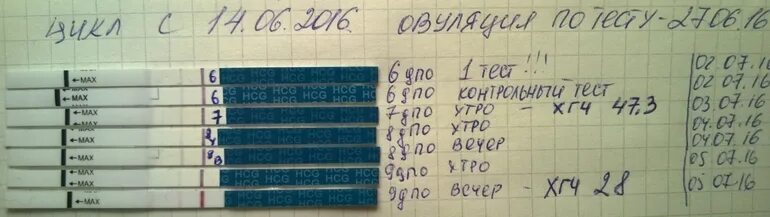 ЦИКЛ С 14.06.2016. ОВУЛЯЦИЯ ПО ТЕСТУ - 27.06.16
← MAX 6 HCG HCG HCG HCG HCG 6 дпо 1 ТЕСТ!!! 02.07.16
← MAX 6 HCG HCG HCG HCG HCG 6 дпо КОНТРОЛЬНЫЙ ТЕСТ 02.07.16
← MAX 7 HCG HCG HCG HCG HCG 7 дпо УТРО - ХГЧ 47.3 03.07.16
← MAX HCG HCG HCG HCG HCG 8 дпо УТРО 04.07.16
← MAX 8В HCG HCG HCG HCG HCG 8 дпо ВЕЧЕР 04.07.16
← MAX HCG HCG HCG HCG HCG 9 дпо УТРО 05.07.16
← MAX HCG HCG HCG HCG HCG 9 дпо ВЕЧЕР - ХГЧ 28 05.07.16